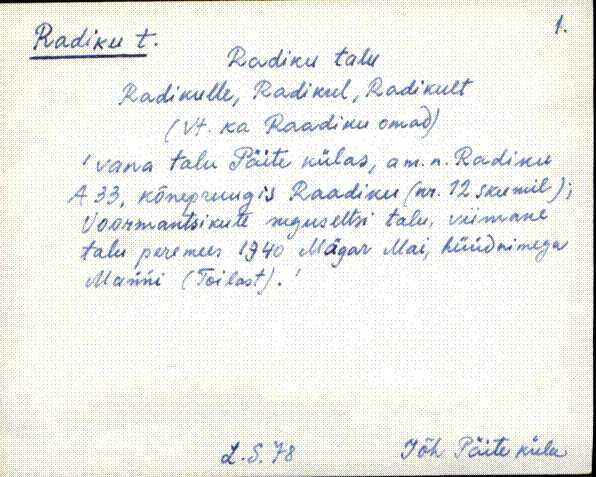 1.
Radiku t.
Radiku talu
Radikulle, Radikul, Radikult
(Vt. ka Raadiku omad)
'vana talu Päite külas, am. n. Radiku
A 33, kõnepruugis Raadiku (nr. 12 skemil);
Voormantsikute seguseltsi talu, viimane
talu peremees 1940 Mägar Mai, hüüdnimega
Manni (Toilast).'
L. S. 78
Jõh Päite küla